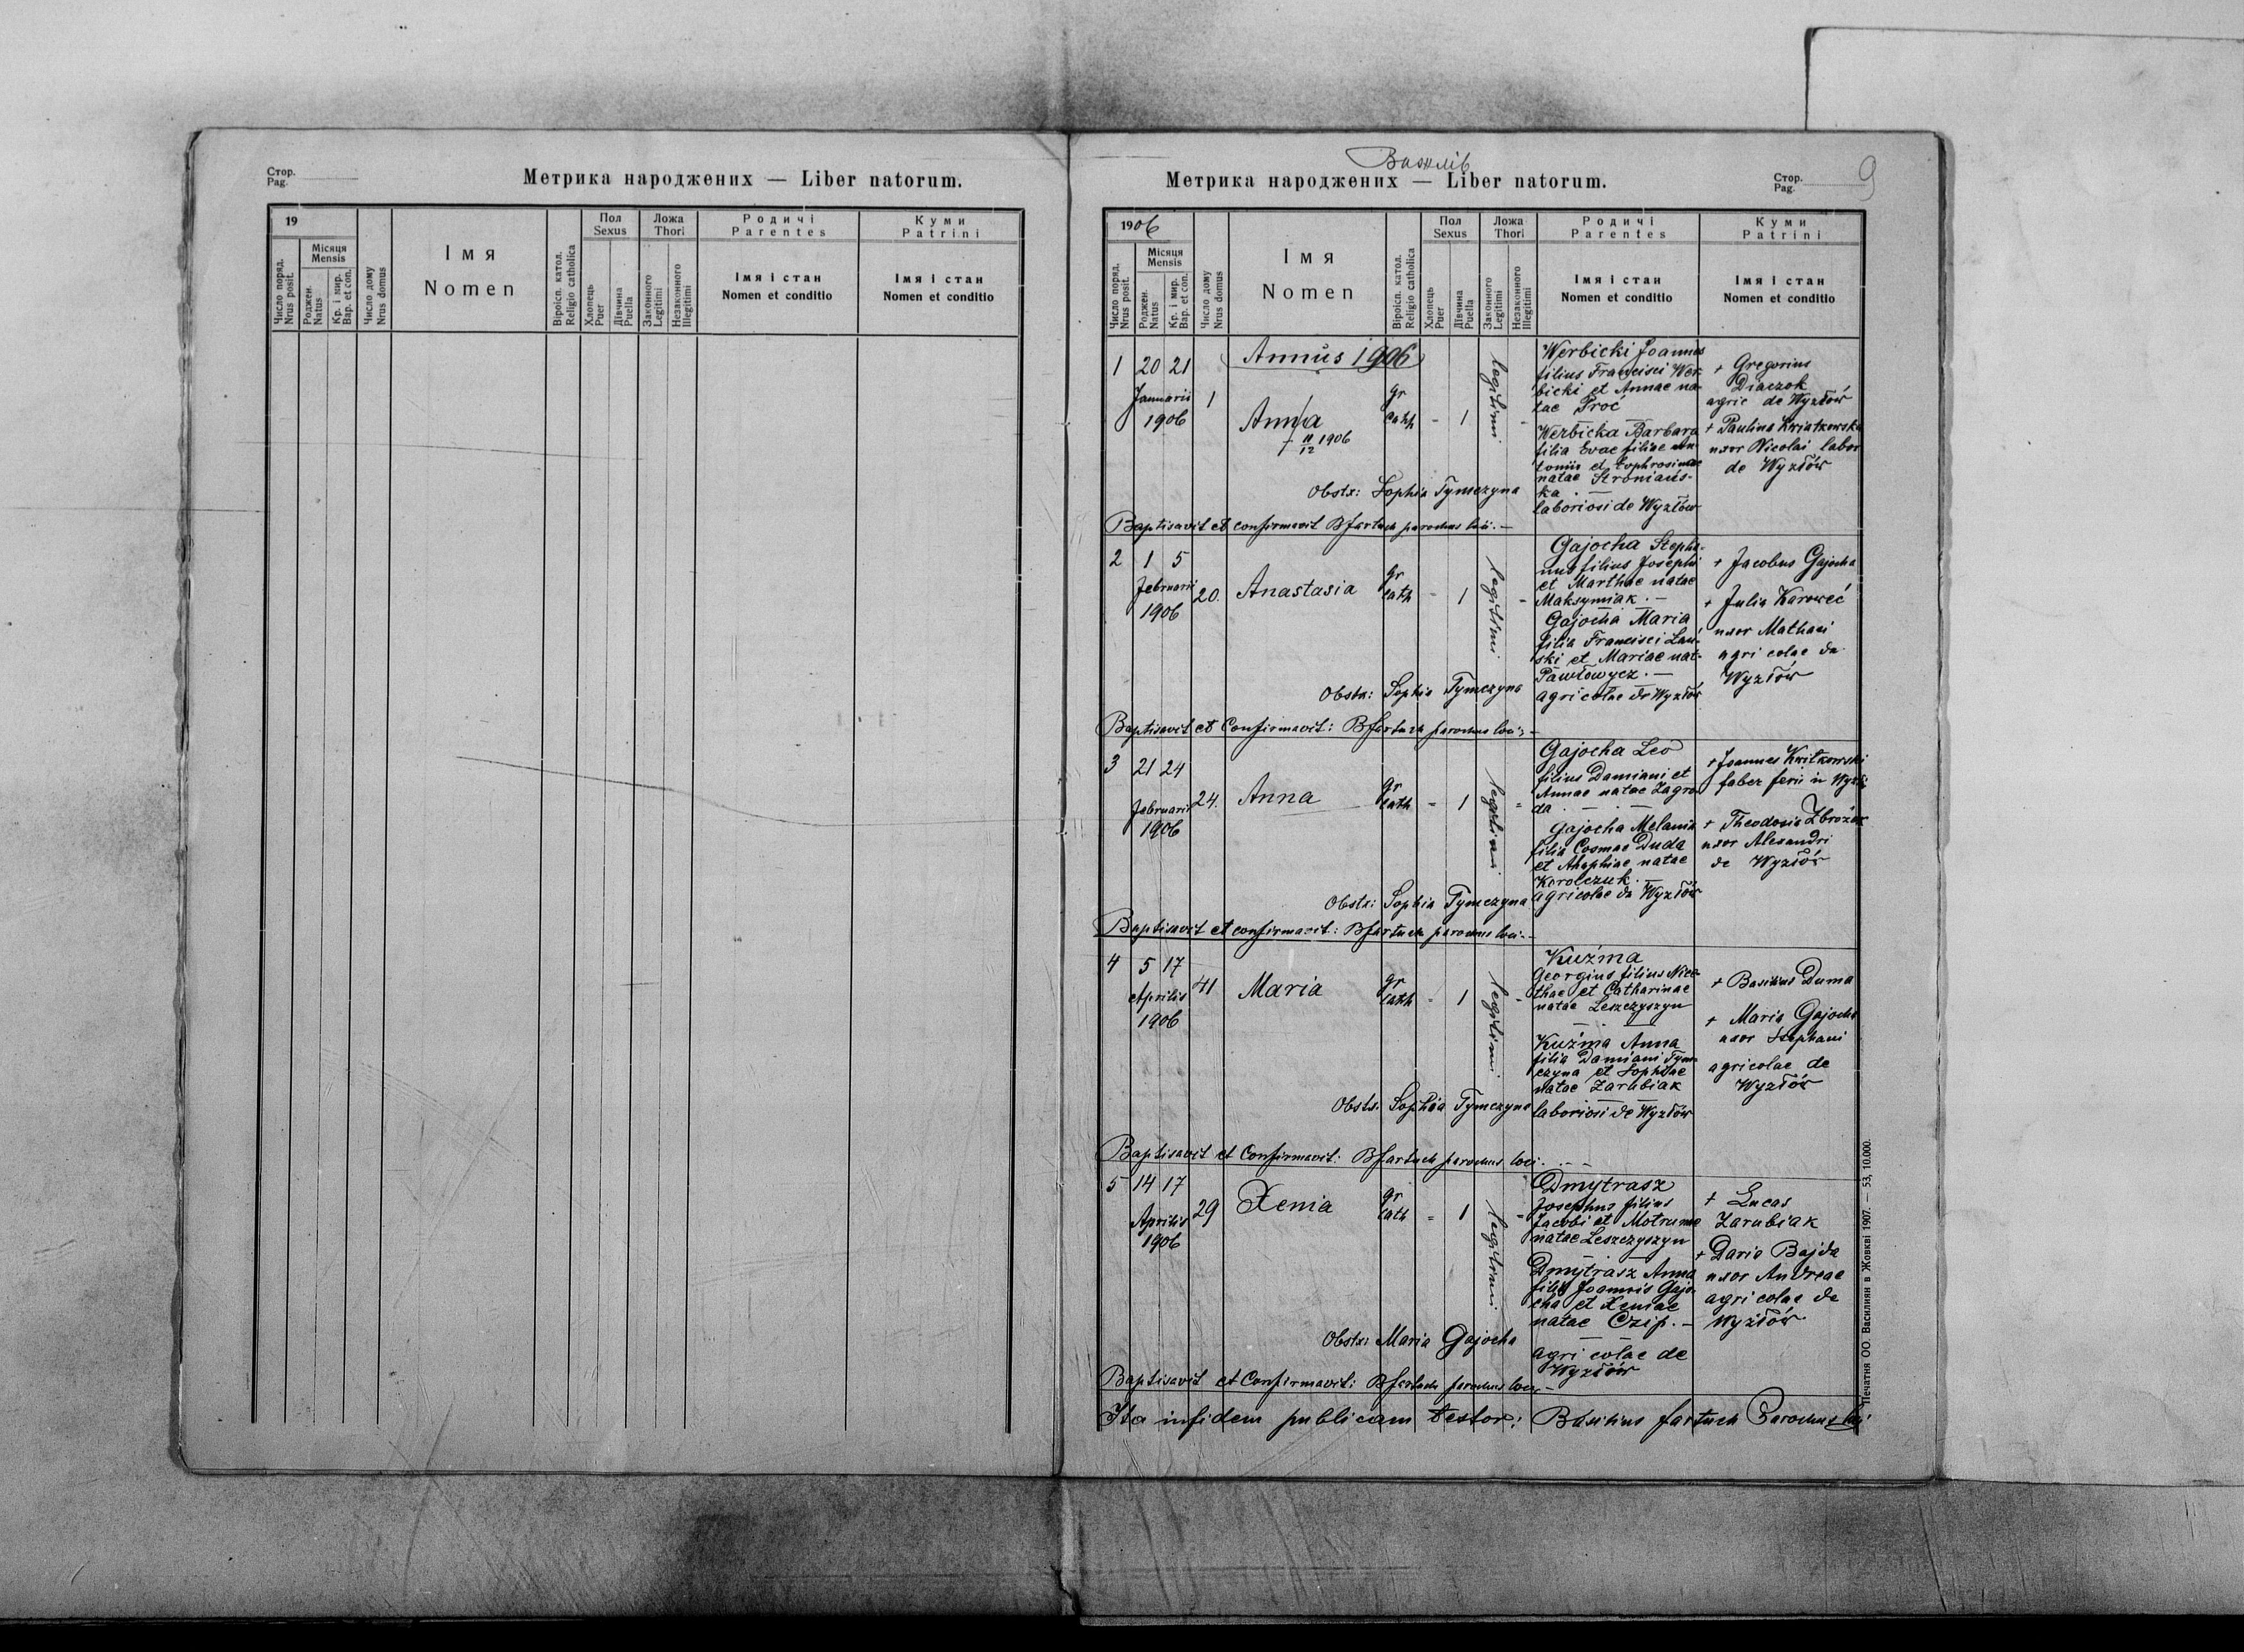 Стор.
Pag.
Метрика народжених — Liber natorum.
19
Число поряд.
Nrus posit.
Місяця
Mensis
Роджен.
Natus
Кр. і мир.
Bap. et con.
Число дому
Nrus domus
Імя
Nomen
Віроісп. катол.
Religio catholica
Пол
Sexus
Хлопець
Puer
Дівчина
Puella
Ложа
Thori
Законного
Legitimi
Незаконного
Illegitimi
Родичі
Parentes
Імя і стан
Nomen et conditio
Куми
Patrini
Імя і стан
Nomen et conditio
Вижлів
Метрика народжених — Liber natorum.
Стор.
Pag.
9
1906
Число поряд.
Nrus posit.
Місяця
Mensis
Роджен.
Natus
Кр. і мир.
Bap. et con.
Число дому
Nrus domus
Імя
Nomen
Віроісп. катол.
Religio catholica
Пол
Sexus
Хлопець
Puer
Дівчина
Puella
Ложа
Thori
Законного
Legitimi
Незаконного
Illegitimi
Родичі
Parentes
Імя і стан
Nomen et conditio
Куми
Patrini
Імя і стан
Nomen et conditio
Annus 1906
1 20 21
Januarii
1906
1
Anna
† 11/12 1906
gr
cath
- 1
legitimi
-
Werbicki Joannes
filius Francisci Wer
bicki et Annae na-
tae Proć
Werbicka Barbara
filia Evae filiae An-
tonii et Eophrosinae
natae Stroniańs-
ka. —
laboriosi de Wyzłów
+ Gregorius
Diaczok
agric de Wyzłów
+ Paulina Kwiatkowska
uxor Nicolai labor
de Wyzłów
Obstx: Sophia Tymczyna
Baptisavit et confirmavit BFartuch parochus loci. —
2 1 5
Februarii
1906
20.
Anastasia
gr
cath
- 1
legitimi
-
Gajocha Stepha-
nus filius Josephi
et Marthae natae
Maksymiak. —
Gajocha Maria
filia Francisci Lań-
ski et Mariae nat-
Pawłowycz. —
agricolae de Wyzłów
+ Jacobus Gajocha
+ Julia Karoweć
uxor Mathaei
agricolae de
Wyzłów
Obstx: Sophia Tymczyna
Baptisavit et Confirmavit: BFartuch parochus loci: —
3 21 24
Februarii
1906
24.
Anna
gr
cath
- 1
legitimi
-
Gajocha Leo
filius Damiani et
Annae natae Zagro-
da. —
Gajocha Melania
filia Cosmae Duda
et Ahaphiae natae
Korolczuk. —
agricolae de Wyzłów
+ Joannes Kwitkowski
faber ferii in Wyzłów
+ Theodosia Zbrożek
uxor Alexandri
de Wyzłów
Obstx: Sophia Tymczyna
Baptisavit et confirmavit: BFartuch parochus loci. —
4 5 17
Aprilis
1906
41
Maria
gr
cath
- 1
legitimi
-
Kuźma
Georgius filius Nice-
thae et Catharinae
natae Leszczyszyn
Kuźma Anna
filia Damiani Tym-
czyna et Sophiae
natae Zarubiak
laboriosi de Wyzłów
+ Basilius Duma
+ Maria Gajocha
uxor Stephani
agricolae de
Wyzłów
Obstx: Sophia Tymczyna
Baptisavit et Confirmavit: BFartuch parochus loci. —
5 14 17
Aprilis
1906
29
Xenia
gr
cath
- 1
legitimi
-
Dmytrasz
Josephus filius
Jacobi et Motrunae
natae Leszczyszyn
Dmytrasz Anna
filia Joannis Gajo-
cha et Xeniae
natae Czip. —
agricolae de
Wyzłów
+ Lucas
Zarubiak
+ Daria Bajda
uxor Andreae
agricolae de
Wyzłów
Obstx: Maria Gajocha
Baptisavit et Confirmavit: BFartuch parochus loci —
Ita in fidem publicam testor: Basilius Fartuch Parochus loci
Печатня ОО. Василиян в Жовкві 1907. — 53, 10.000.